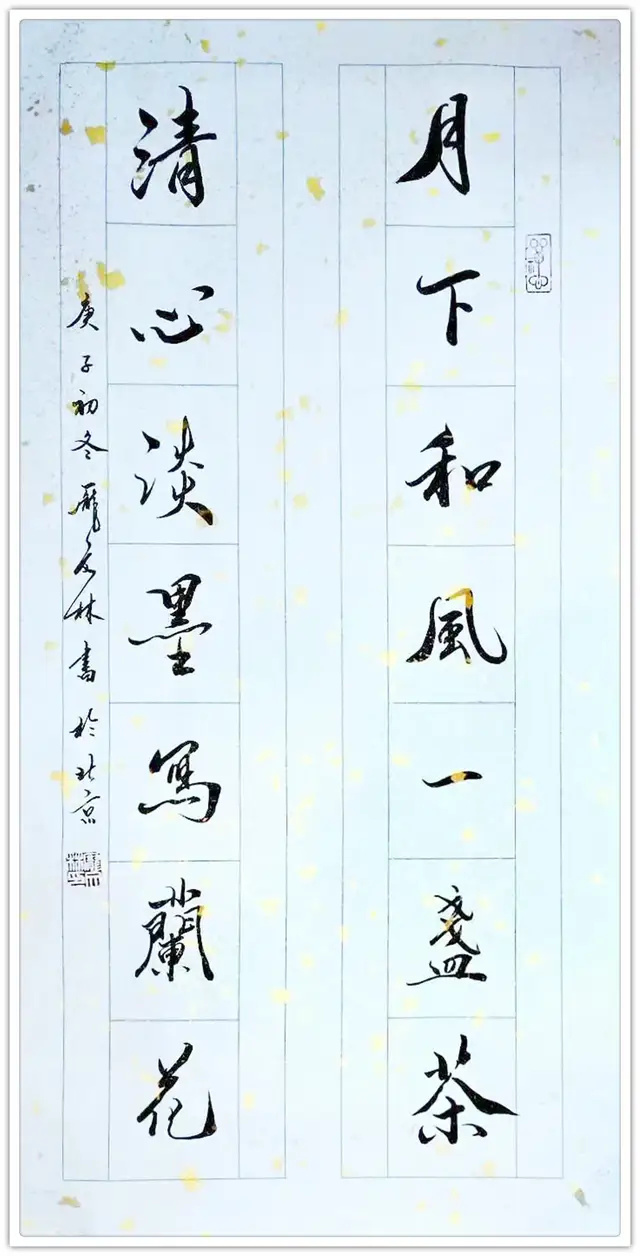 月下和風一盏茶
清心淡墨寫蘭花
庚子初冬龐友林書於北京